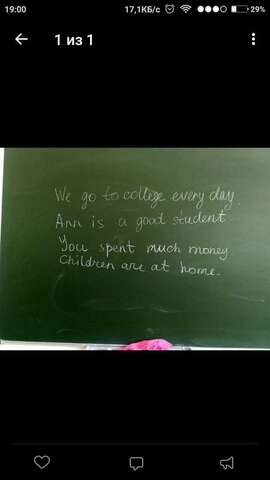 19:00 17,1КБ/с 29%
1 из 1
We go to college every day.
Ann is a good student.
You spent much money
Children are at home.